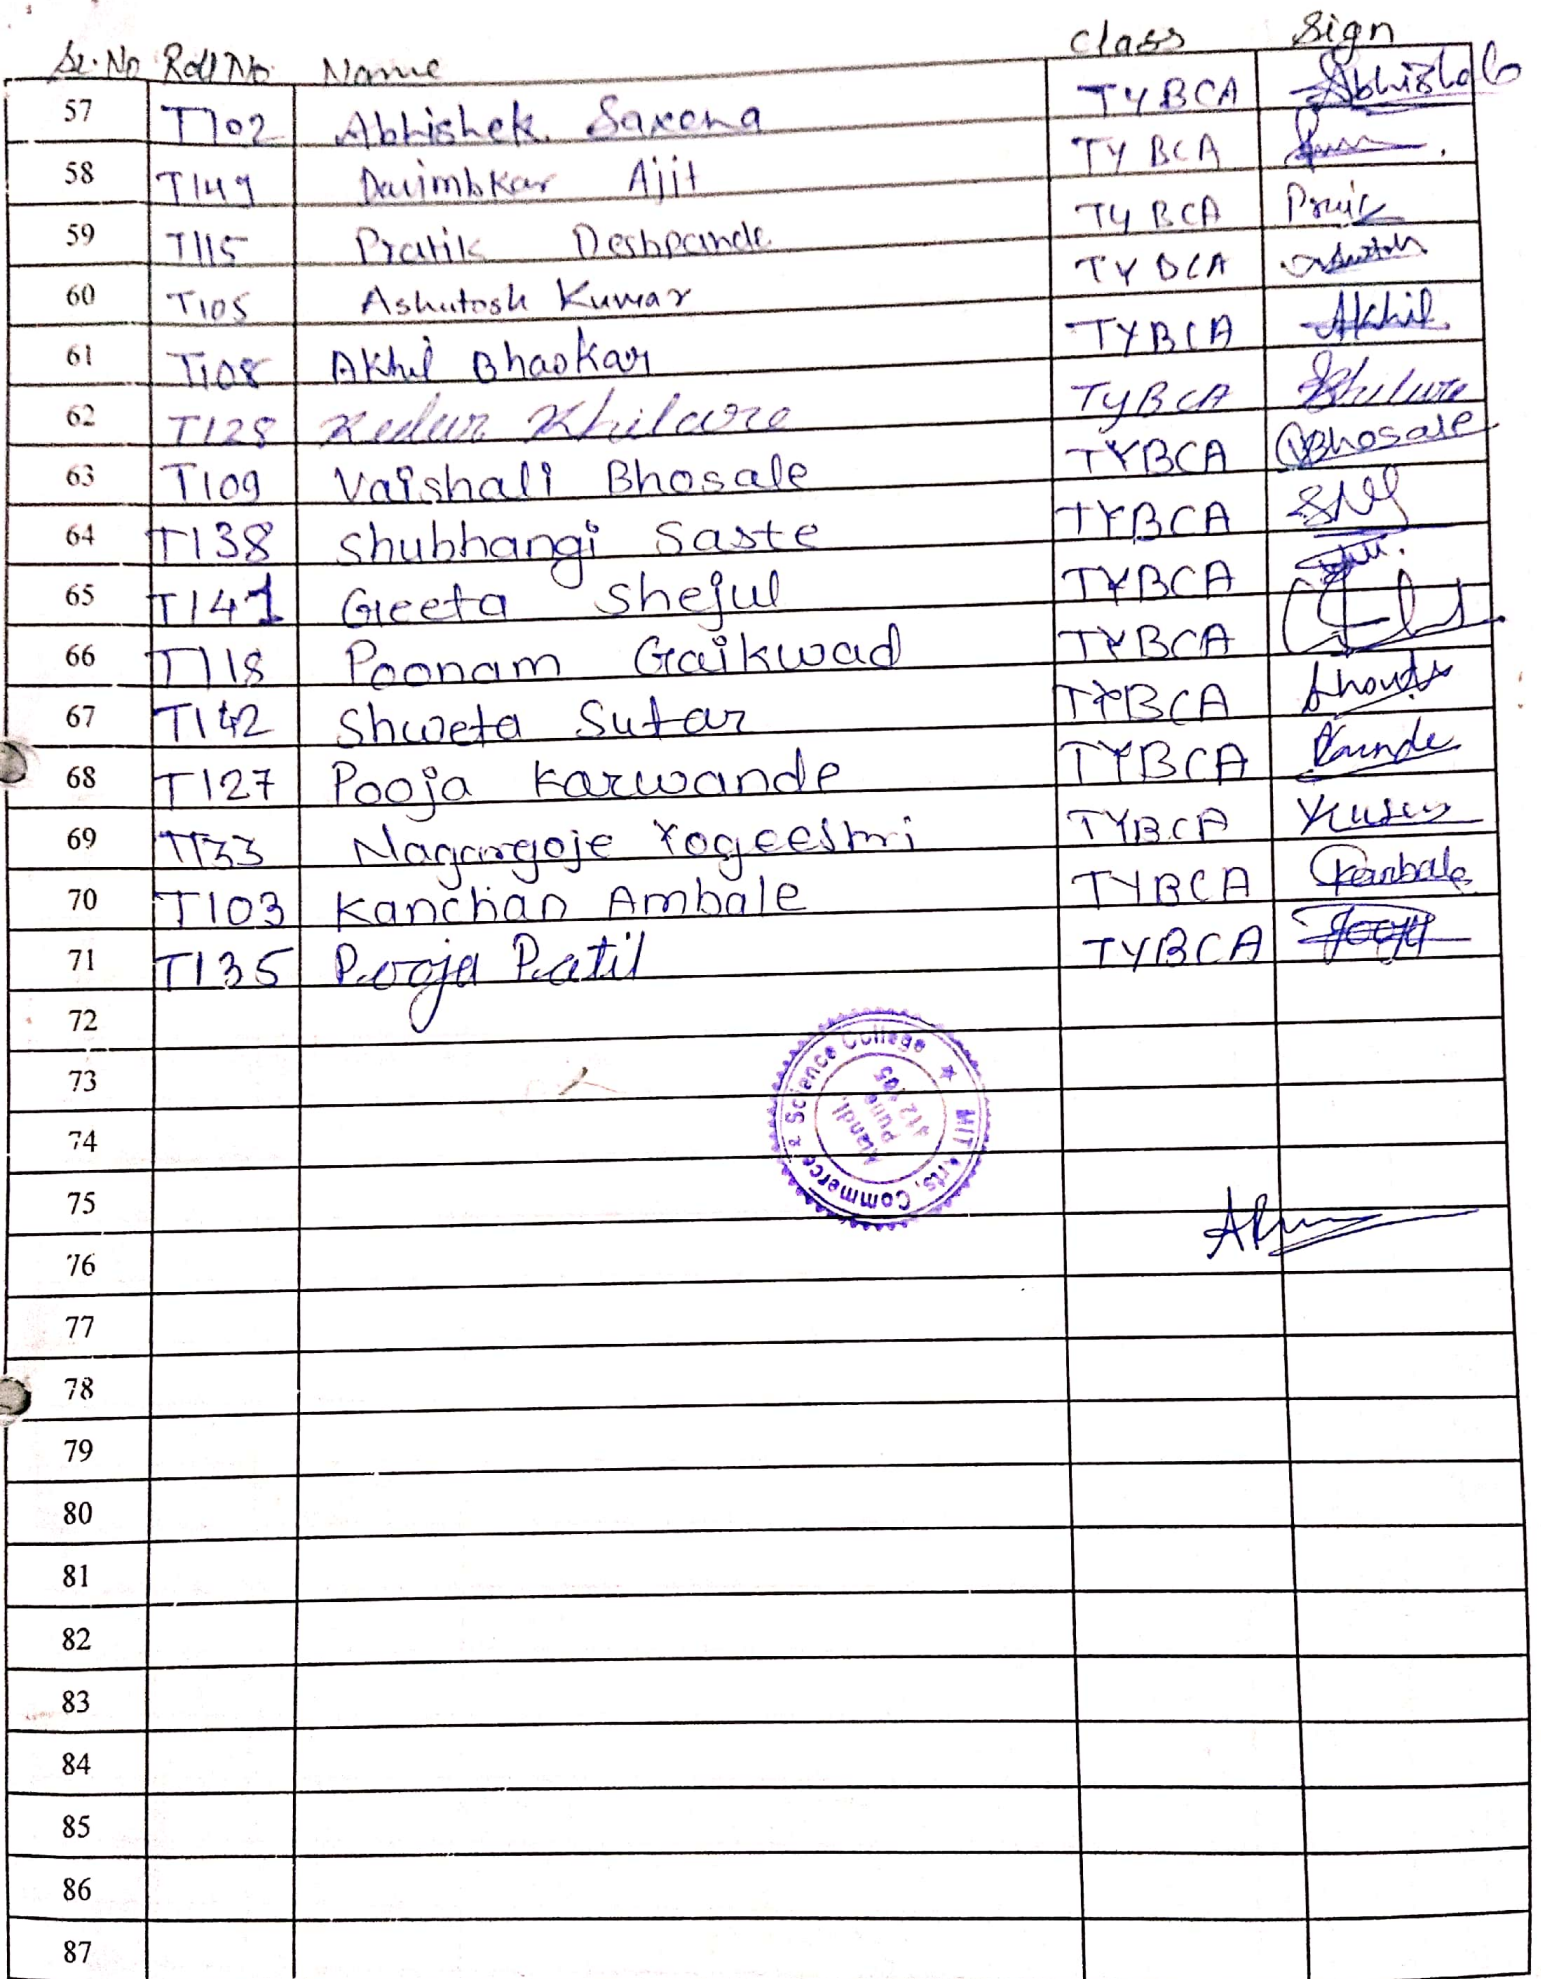 Sr. No Roll No Name Class Sign
57 T102 Abhishek Saxena TYBCA Abhishek
58 T149 Ajit TYBCA
59 T115 Pratik Deshpande TYBCA
60 T105 Ashutosh Kumar TYBCA
61 T108 Akhil Bhaskar TYBCA Akhil
62 T128 Kedar Khilare TYBCA
63 T109 Vaishali Bhosale TYBCA Bhosale
64 T138 Shubhangi Saste TYBCA
65 T141 Geeta Shejul TYBCA
66 T118 Poonam Gaikwad TYBCA
67 T142 Shweta Sutar TYBCA
68 T127 Pooja Karwande TYBCA
69 T133 Nagargoje Yogeeshri TYBCA
70 T103 Kanchan Ambale TYBCA
71 T135 Pooja Patil TYBCA
72
MIT Arts, Commerce & Science College
Alandi,
Pune
412 105
73
74
75
76
77
78
79
80
81
82
83
84
85
86
87